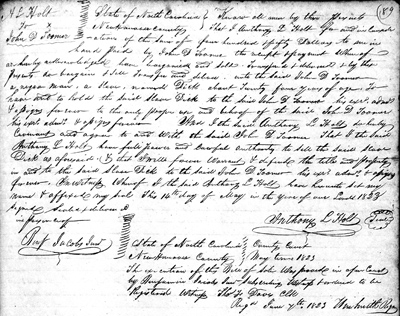 189
A L Holt State of North Carolina Know all men by these Presents
x
John D Toomer New Hanover County That I Anthony L Holt for and in consider
ation of the sum of four hundred & fifty Dollars to me in
hand Paid by John D Toomer the receipt & payment Whereof
is hereby acknowledged, have bargained and sold transfer & delivered & by these
Presents do bargain & sell transfer and deliver unto the said John D Toomer
a negro man, a Slave, named Dick about twenty four years of age. To
have and to hold the said Slave Dick to the said John D Toomer his
& assigns forever to the only proper use and behoof of the said John D Toomer
his & assigns forever. I the said Anthony L Holt do hereby
Covenant and agree to and with the said John D Toomer That I the said
Anthony L Holt have full power and lawful authority to sell the said Slave
Dick as aforesaid & that I will forever Warrant & defend the title and property
in and to the said Slave Dick to the said John D Toomer his & assigns
forever. In witness Whereof I the said Anthony L Holt have hereunto set my
name & affixed my seal This 16th day of May in the year of our Lord 1823
Signed sealed & delivered
in presence of Anthony L Holt Seal
Benj Jacobs Junr
State of North Carolina County Court
New Hanover County May Term 1823
The execution of this Bill of Sale Was proved in open Court
by Benjamin Jacobs Junr a Subscribing Witness & ordered to be
Registered Witness Tho F Davis Clk
Regd June 7th 1823